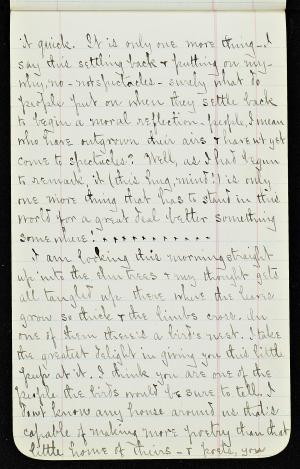 it quick. It is only one more thing—I
say this settling back & putting on my—
why, no—not spectacles—surely what do
people put on when they settle back
to begin a moral reflection—people, I mean
who have outgrown their airs & haven't yet
come to spectacles? Well, as I had begun
to remark, it (this hug, mind!) is only
one more thing that has to stand in this
world for a great deal better something
somewhere! . . . . . . . . . . . .
I am looking this morning straight
up into the elm trees & my thought gets
all tangled up there where the leaves
grow so thick & the limbs cross. In
one of them there's a bird's nest. I take
the greatest delight in giving you this little
peep at it. I think you are one of the
people the birds would be sure to tell. I
don't know any house around us that's
capable of making more poetry than that
little home of theirs—& poets, you